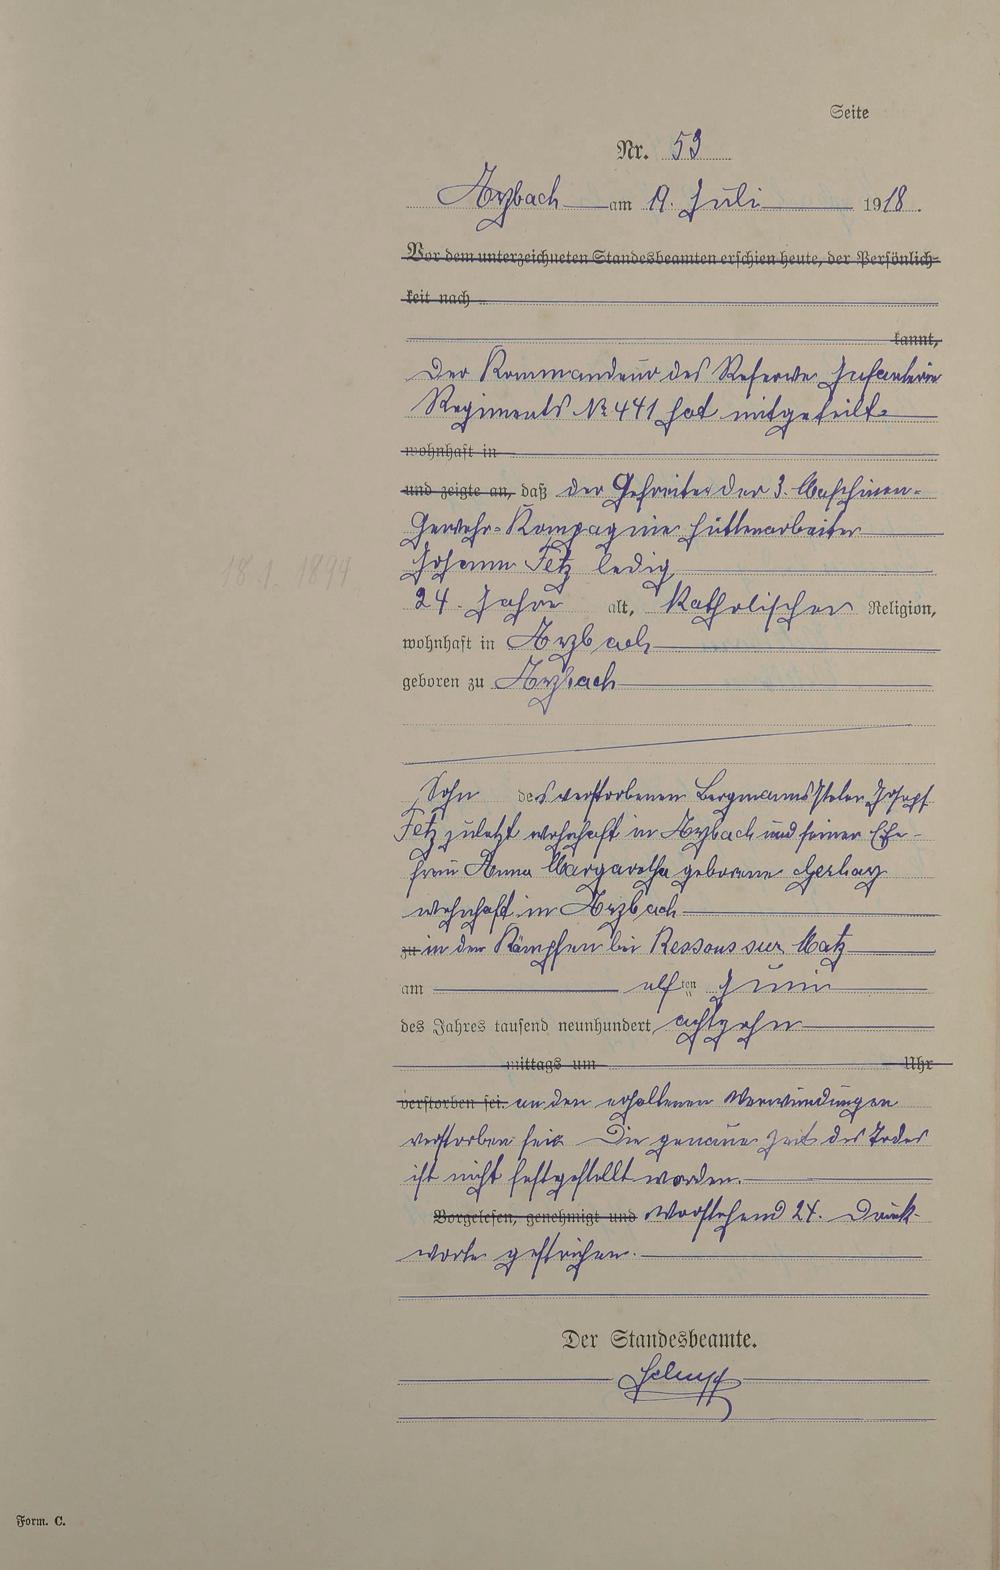 Seite
Nr. 53
Arzbach am 9. Juli 1918.
Vor dem unterzeichneten Standesbeamten erschien heute, der Persönlich-
keit nach
kannt,
Der Kommandeur des Reserve Infanterie
Regiments № 441 hat mitgeteilt
wohnhaft in
und zeigte an, daß der Gefreite der 3. Maschinen-
Gewehr-Kompagnie Hüttenarbeiter
18.1.1894
Johann Fetz ledig
24 Jahre alt, katholischer Religion,
wohnhaft in Arzbach
geboren zu Arzbach
Sohn des verstorbenen Joseph
Fetz zuletzt wohnhaft in Arzbach und seiner Ehe-
frau Anna Margaretha geborene
wohnhaft in Arzbach
zu in den Kämpfen bei Ressons sur Matz
am elften Juni
des Jahres tausend neunhundert achtzehn
mittags um Uhr
verstorben sei. an den erhaltenen Verwundungen
verstorben sei. Die genaue Zeit des Todes
ist nicht festgestellt worden.
Vorgelesen, genehmigt und Vorstehend 24. Druck-
worte gestrichen.
Der Standesbeamte.
Form. C.